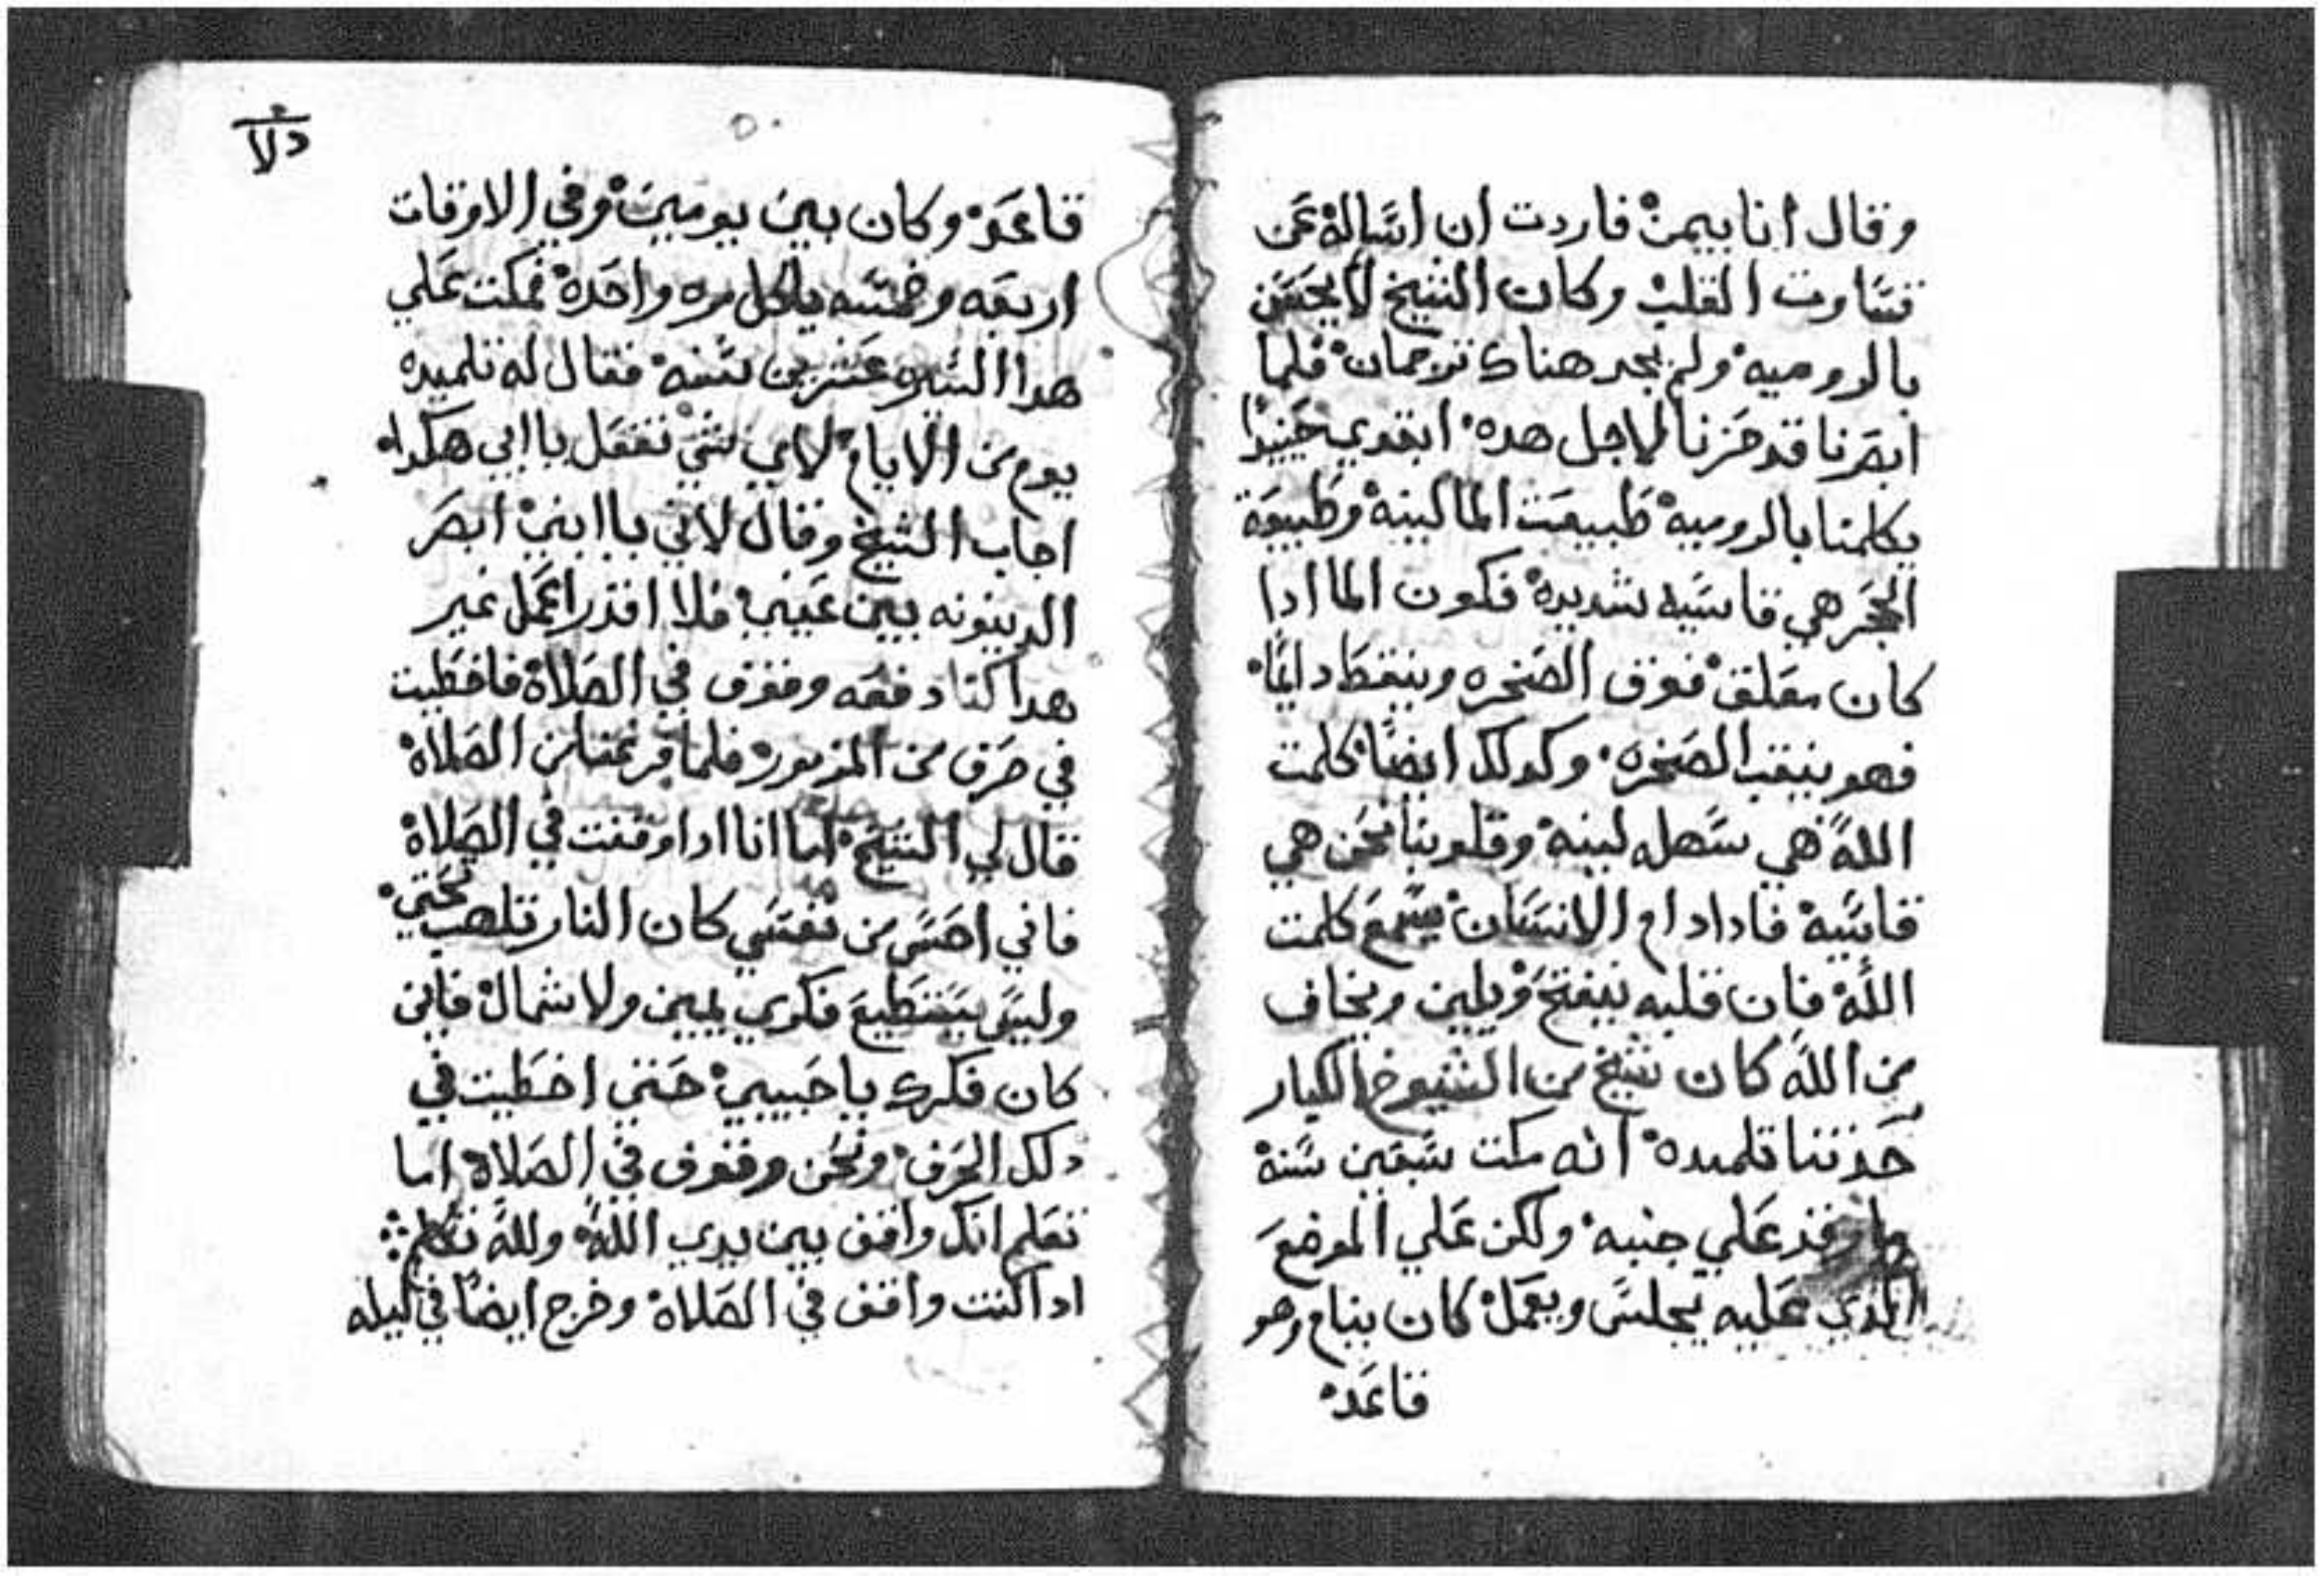 وقال انا بيمن فاردت ان اساله عن
قساوت القلب وكان الشيخ لا يحسن
بالروميه ولم نجد هناك ترجمان فلما
ابصرنا قد حزنا لاجل هده ابتدي حينيدا
يكلمنا بالروميه طبيعت الما لينه وطبيعة
الحجر هي قاسيه شديده فكون الما ادا
كان معلق فوق الصخره وينقط دايما
فهو ينقب الصخره وكدلك ايضا كلمت
الله هي سهله لينه وقلوبنا نحن هي
قاسيه فادا دام الانسان يسمع كلمت
الله فان قلبه ينفتح ويلين ويخاف
من الله كان شيخ من الشيوخ الكبار
حدتنا تلميده انه مكت سبعين سنة
ما رقد علي جنبه ولكن علي الموضع
الذي عليه يجلس ويعمل كان ينام وهو
قاعد
قاعد وكان بين يومين وفي الاوقات
اربعه وخمسه ياكل مره واحده فمكت علي
هدا عشرين سنه فقال له تلميده
يوم من الايام لاي شي تفعل يا ابي هكدا
اجاب الشيخ وقال لاني يا ابني ابصر
الدينونه بين عيني فلا اقدر اعمل غير
هدا كنا دفعه وقوف في الصلاة فاخطيت
في حرف من المزمور فلما فرغنا من الصلاة
قال لي الشيخ اما انا ادا وقفت في الصلاة
فاني احس من نفسي كان النار تلهب تحتي
وليس يستطيع فكري يمين ولا شمال فاين
كان فكرك يا حبيبي حتي اخطيت في
دلك الحرف ونحن وقوف في الصلاة اما
تعلم انك واقف بين يدي الله ولله تتكلم
ادا كنت واقف في الصلاة وخرج ايضا في ليله